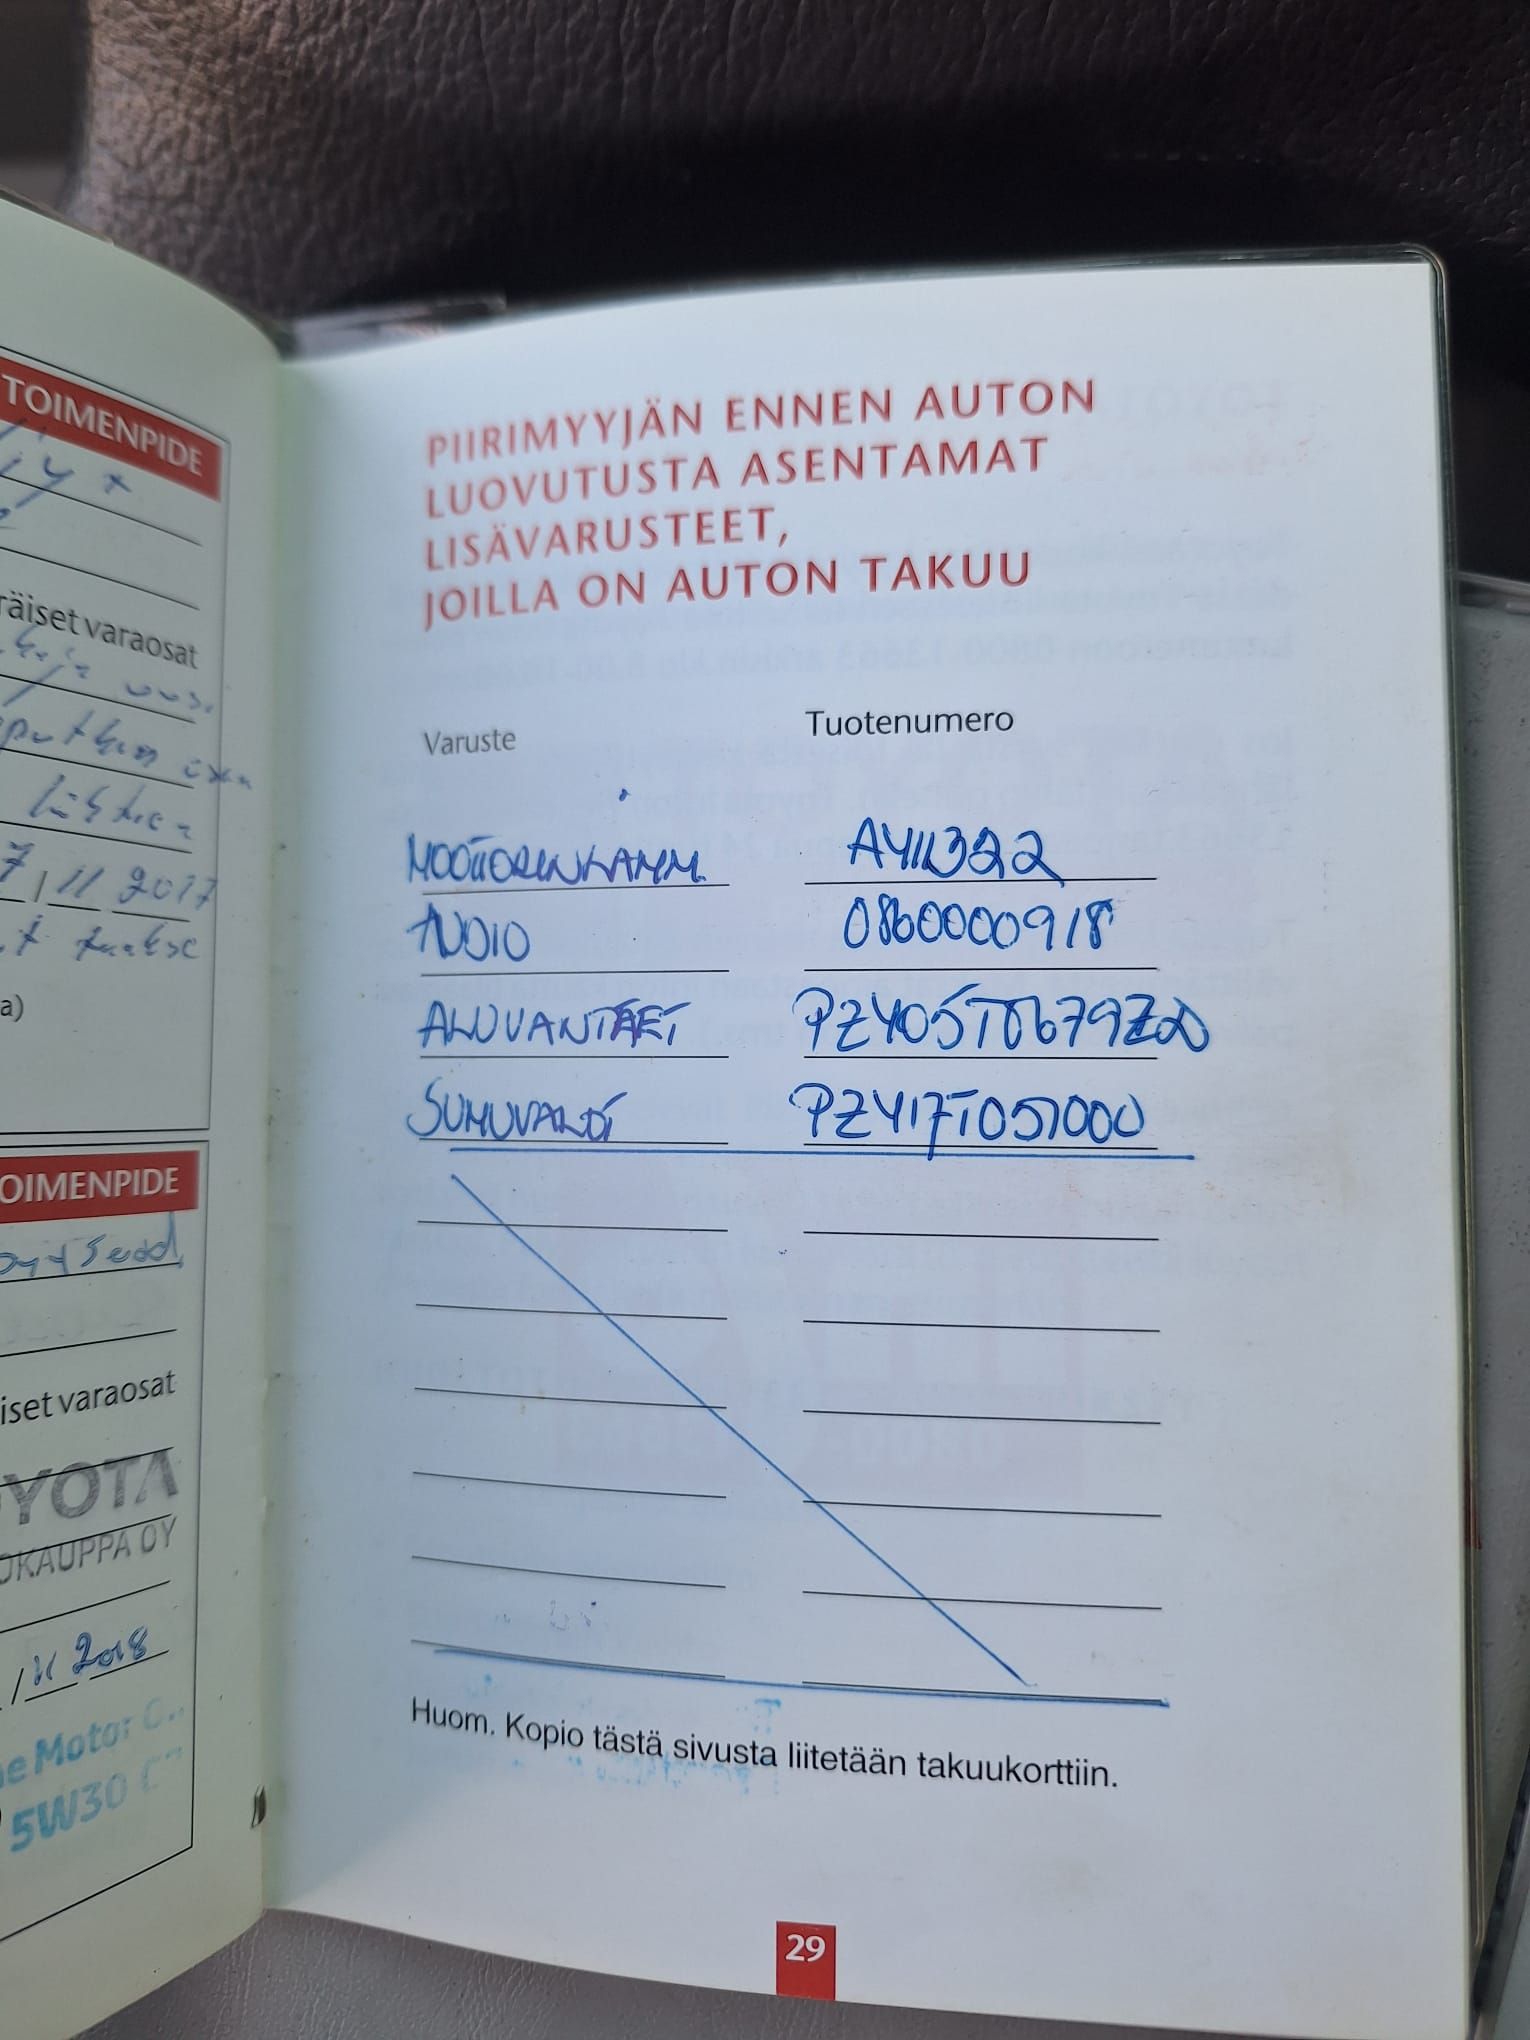 TOIMENPIDE
räiset varaosat
7/11 2017
a)
OIMENPIDE
iset varaosat
OYOTA
OKAUPPA OY
/11 2018
ne Motor
5W30
PIIRIMYYJÄN ENNEN AUTON
LUOVUTUSTA ASENTAMAT
LISÄVARUSTEET,
JOILLA ON AUTON TAKUU
Varuste Tuotenumero
MOOTTORINLÄMM. AY111322
AUDIO 0860000918
ALUVANTEET PZ405T0679ZD
SUMUVALOT PZ417T051000
Huom. Kopio tästä sivusta liitetään takuukorttiin.
29